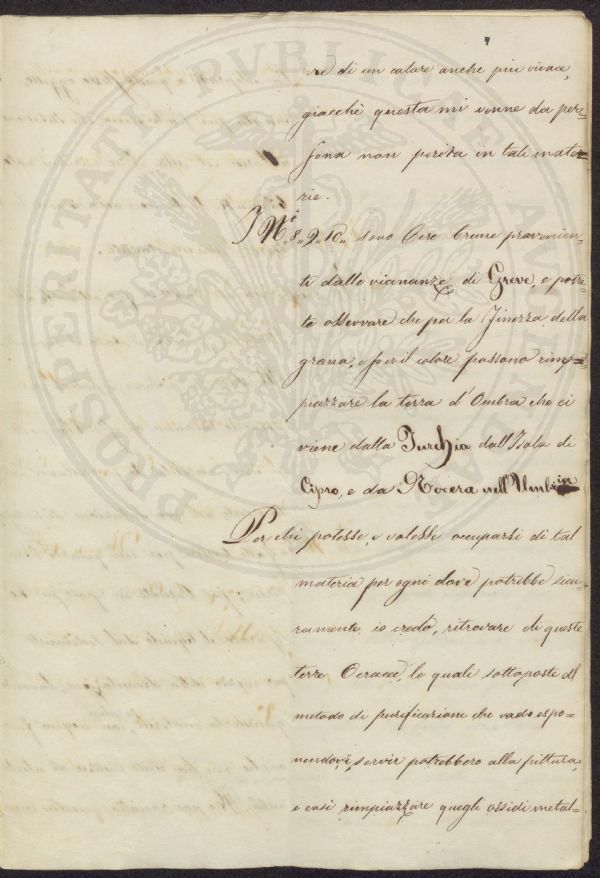 re di un colore anche piu vivace,
giacchè questa mi venne da per=
sona non perita in tali mate=
rie.
I Ni. 8,, 9,, 10,, sono Ocre brune provenien=
ti dalle vicinanze di Greve, e potre=
te osservare che per la finezza della
grana, e per il colore possono rim=
piazzare la terra d'Ombra che ci
viene dalla Turchia dall'Isola di
Cipro, e da Nocera nell'Umbria
Per chi potesse, e volesse occuparsi di tal
materia per ogni dove potrebbe sicu=
ramente, io credo, ritrovare di queste
terre Ocracee, le quali sottoposte al
metodo di purificazione che vado espo=
nendovi, servir potrebbero alla pittura,
e così rimpiazzare quegli ossidi metal=
PROSPERITATI PVBLICAE AVGENDAE